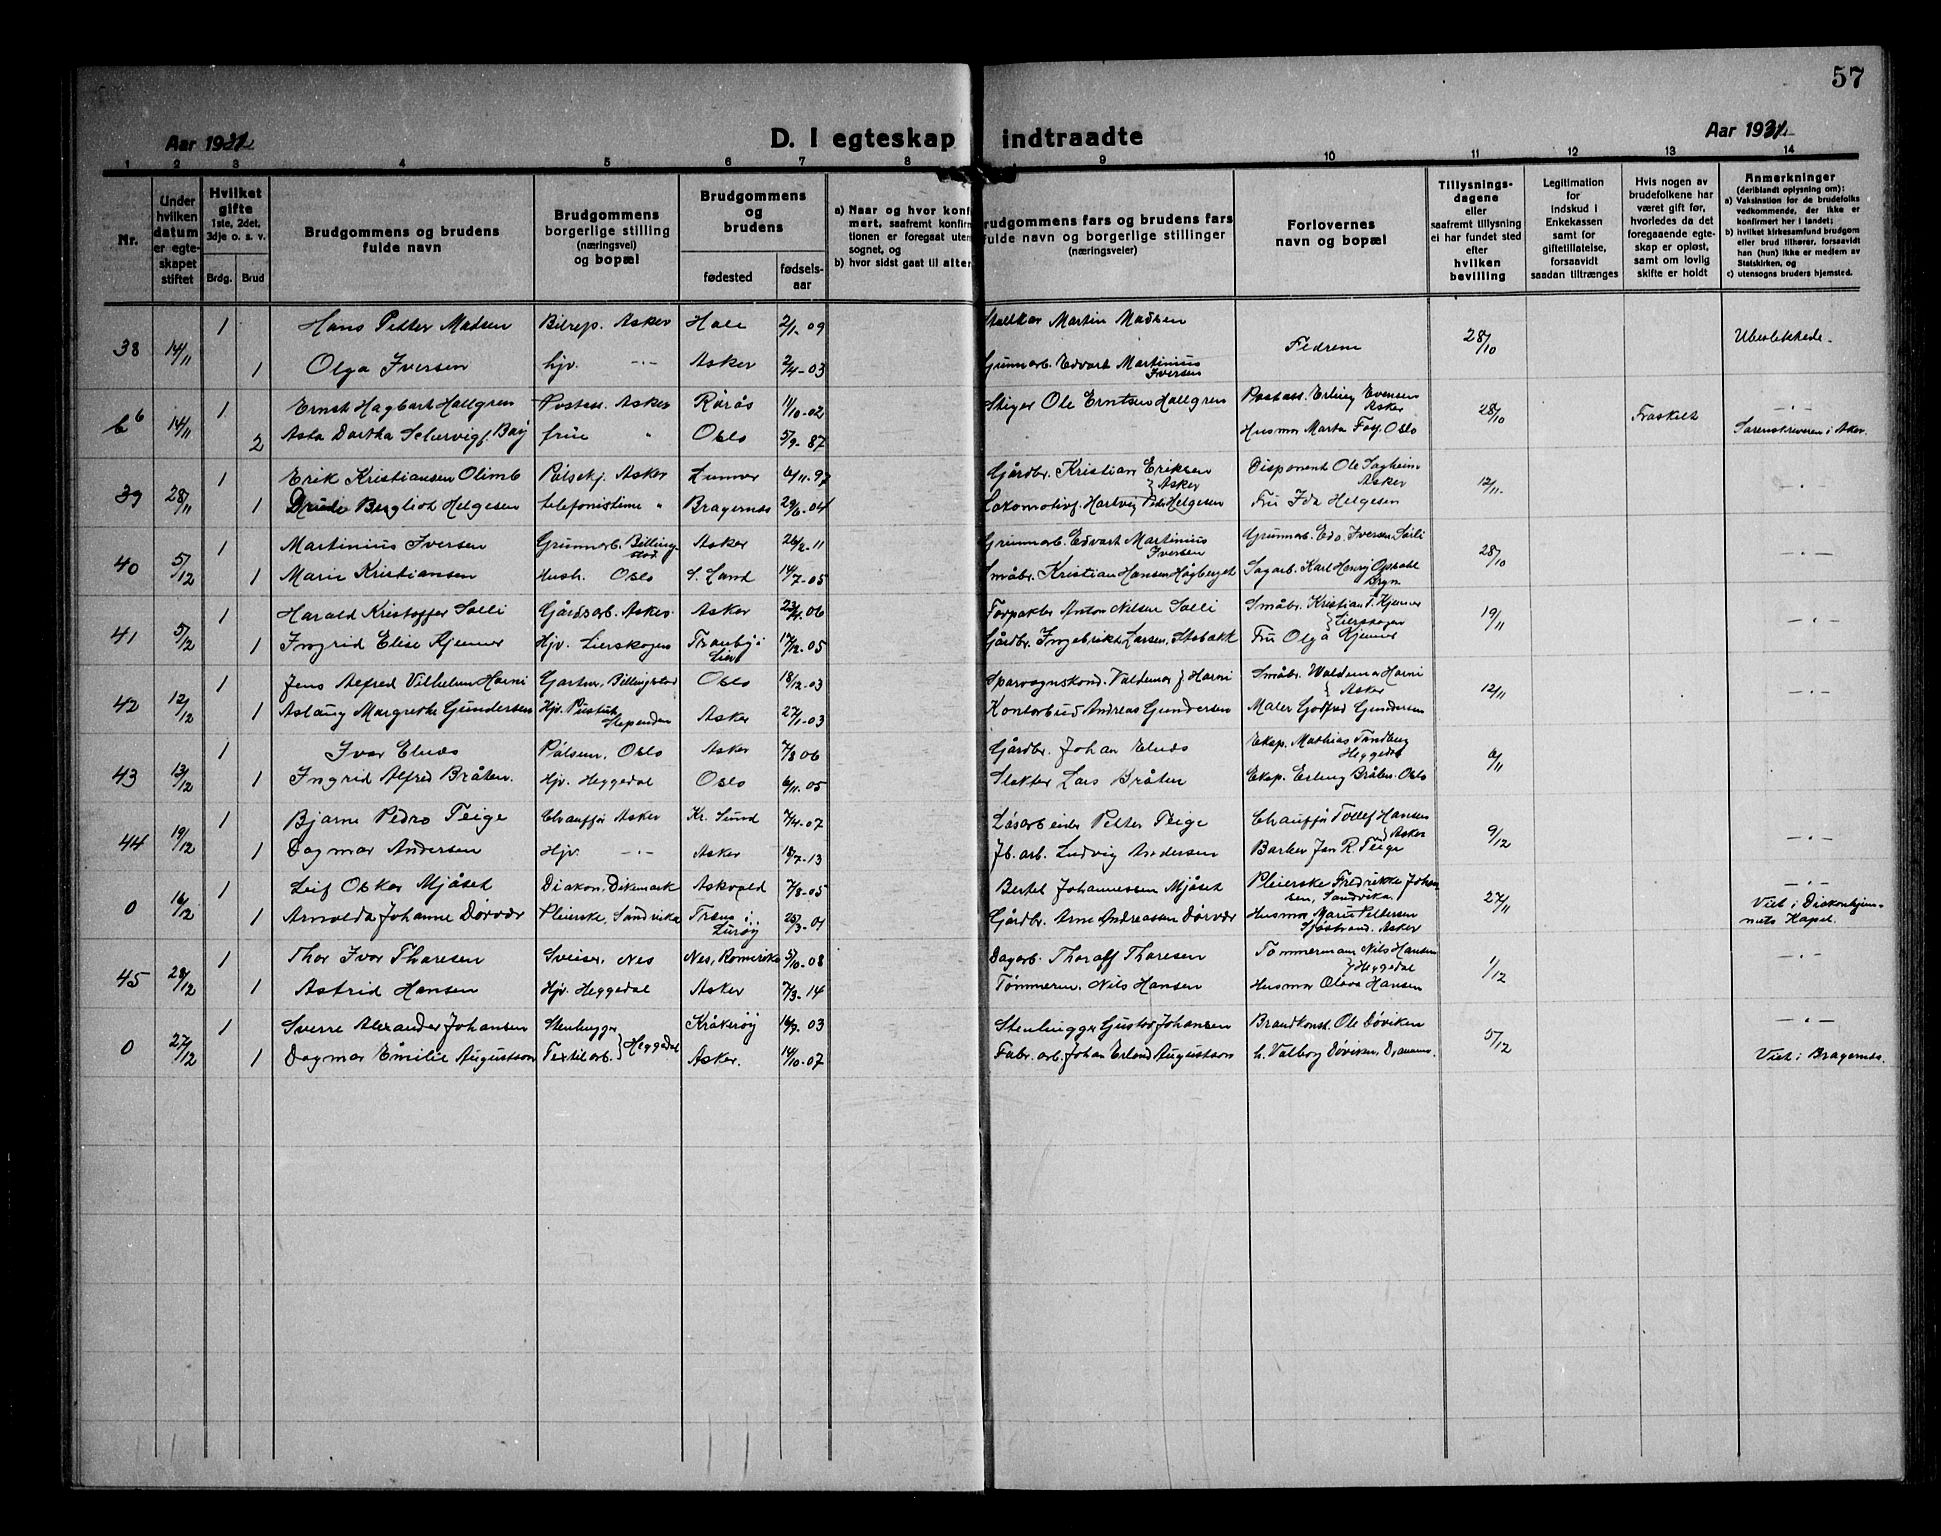 57
Aar 1931
D. I egteskap indtraadte
Aar 1931
1 2 3 4 5 6 7 8 9 10 11 12 13 14
Nr.
Under hvilken datum er egteskapet stiftet
Hvilket gifte
1ste, 2det, 3dje o. s. v.
Brdg. Brud
Brudgommens og brudens fulde navn
Brudgommens borgerlige stilling (næringsvei) og bopæl
Brudgommens og brudens
fødested
fødsels-aar
a) Naar og hvor konfi
mert, saafremt konfirm
tionen er foregaat uten
sognet, og
b) hvor sidst gaat til alter
rudgommens fars og brudens fars
fulde navn og borgerlige stillinger
(næringsveier)
Forlovernes navn og bopæl
Tillysnings-dagene
eller
saafremt tillysning ei har fundet sted
efter
hvilken bevilling
Legitimation for indskud i Enkekassen samt for giftetillatelse, forsaavidt saadan tiltrænges
Hvis nogen av brudefolkene har været gift før, hvorledes da det foregaaende egteskap er opløst, samt om lovlig skifte er holdt
Anmerkninger
(deriblandt oplysning om):
a) Vaksination for de brudefolks vedkommende, der ikke er konfirmert her i landet;
b) hvilket kirkesamfund brudgom eller brud tilhører, forsaavidt han (hun) ikke er medlem av Statskirken, og
c) utensogns bruders hjemsted.
38 14/11 1 Hans Petter Madsen Bilrep. Asker Hole 2/1-09 Martin Madsen Fedrene 28/10 Ubeslektede
1 Olga Iversen hjv. -"- Asker 2/4-03 Grunnarb. Edvart Martinius Iversen
b6 14/11 1 Ernst Hagbart Hallgren Postass. Asker Rørås 11/10-02 Stiger Ole Erntsen Hallgren Postass. Erling Evensen Asker 28/10 -"-
2 Asta Dortha frue " Oslo 5/9-87 Husmor Marta Oslo Fraskilt Sorenskriveren i Aker.
39 28/11 1 Erik Kristiansen Olimb Pølsekj. Asker Lunner 6/11-97 Gårdbr. Kristian Eriksen Disponent Ole Sagheim Asker 12/11 -"-
1 Bergliot Helgesen telefonistinne " Bragernes 29/6-04 Lokomotivf. Hartvig Helgesen Fru Ida Helgesen
40 5/12 1 Martinius Iversen Grunnarb. Billingstad Asker 26/2-11 Grunnarb. Edvart Martinius Iversen Grunnarb. Edv. Iversen 28/10 -"-
1 Marie Kristiansen Hush. Oslo S. Land 14/7-05 Småbr. Kristian Hansen Hågberget Sagarb. Karl Henry
41 5/12 1 Harald Kristoffer Solli Gårdsarb. Asker Asker 23/4-06 Forpakter Anton Nilsen Solli Småbr. Kristian T. Kjenner Lierskogen 19/11 -"-
1 Ingrid Elise Kjenner Hjv. Lierskogen Tranby i Lier 17/12-05 Gårdbr. Ingebrikt Larsen Fru Olga Kjenner
42 12/12 1 Jens Alfred Vilhelm Harni Gartner, Billingstad Oslo 18/12-03 Sporvognskond. Valdemar Harni Småbr. Waldemar Harni Asker 12/11 -"-
1 Aslaug Margrethe Gundersen Hjv. Asker 27/1-03 Kontorbud Andreas Gundersen Maler Godfred Gundersen
43 13/12 1 Ivar Elnes Pølsem. Oslo Asker 7/8 06 Gårdbr. Johan Elnes Eksp. Mathias Tandberg Heggedal 6/11
1 Ingrid Alfred Bråten. Hjv. Heggedal Oslo 6/11-05 Slakter Lars Bråten Eksp. Erling Bråten. Oslo
44 19/12 1 Bjarne Pedro Teige Chauffør Asker Kr. Sund 7/4-07 Løsarbeider Petter Teige Chauffør Tollef Hansen Asker 9/12 -"-
1 Dagmar Andersen Hjv. -"- Asker 18/7-13 Jb. arb. Ludvig Andersen Barber Jan R. Teige
0 16/12 1 Leif Oskar Mjåset Diakon, Dikemark Askvold 7/8-05 Bertel Johannessen Mjåset Pleierske Fredrikke Johansen, Sandvika 27/11 -"-
1 Arnolda Johanne Dørvær Pleierske, Sandvika Træna i Lurøy 25/3-01 Gårdbr. Arne Andreasen Dørvær Husmor Marie Pettersen Sjøstrand. Asker Viet i Diakonhjemmets Kapel.
45 28/12 1 Thor Ivar Thoresen Sveiser, Nes Nes, Romerike 5/10-08 Dagarb. Thoralf Thoresen Tømmermann Nils Hansen Heggedal 1/12 -"-
1 Astrid Hansen Hjv. Heggedal Asker 7/3-14 Tømmerm. Nils Hansen Husmor Olava Hansen
0 27/12 1 Sverre Alexander Johansen Stenhugger Heggedal Kråkerøy 16/9-03 Stenhugger Gustav Johansen Brandkonst. Ole Døviken 5/12 -"-
1 Dagmar Emilie Augustson Textilarb. Asker. 14/10-07 Fabr. arb. Johan Erland Augustson h. Valborg Døviken, Drammen. Viet i Bragernes.